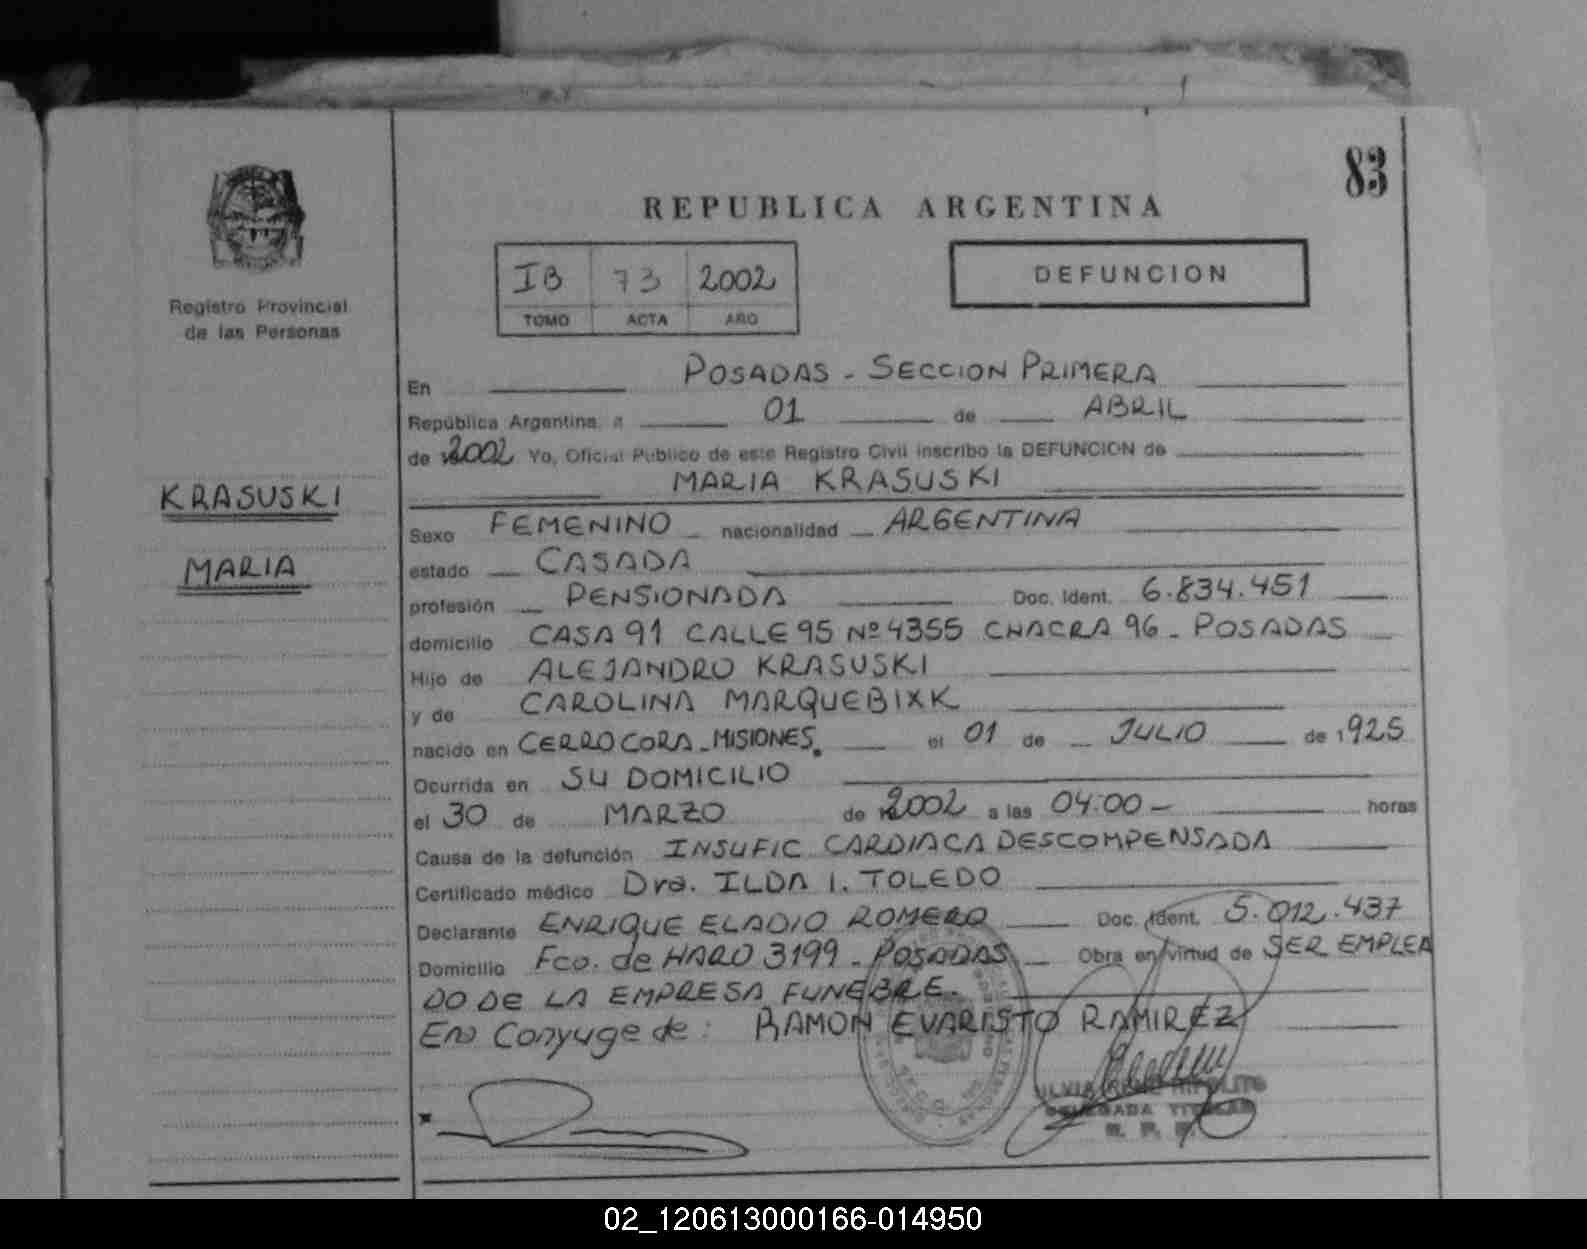 83
REPUBLICA ARGENTINA
IB 73 2002
TOMO ACTA AÑO
DEFUNCION
Registro Provincial
de las Personas
KRASUSKI
MARIA
En POSADAS - SECCION PRIMERA
República Argentina, a 01 de ABRIL
de 2002 Yo, Oficial Público de este Registro Civil inscribo la DEFUNCION de
MARIA KRASUSKI
Sexo FEMENINO nacionalidad ARGENTINA
estado CASADA
profesión PENSIONADA Doc. Ident. 6.834.451
domicilio CASA 91 CALLE 95 Nº 4355 CHACRA 96 - POSADAS
Hijo de ALEJANDRO KRASUSKI
y de CAROLINA MARQUEBIXK
nacido en CERRO CORA - MISIONES. el 01 de JULIO de 1925
Ocurrida en SU DOMICILIO
el 30 de MARZO de 2002 a las 04:00 - horas
Causa de la defunción INSUFIC CARDIACA DESCOMPENSADA
Certificado médico Dra. ILDA I. TOLEDO
Declarante ENRIQUE ELADIO ROMERO Doc. Ident. 5.012.437
Domicilio Fco. de HARO 3199 - POSADAS Obra en virtud de SER EMPLEA
DO DE LA EMPRESA FUNEBRE.
Era Conyuge de: RAMON EVARISTO RAMIREZ
DELEGADA TITULAR
R. P. P.
02_120613000166-014950